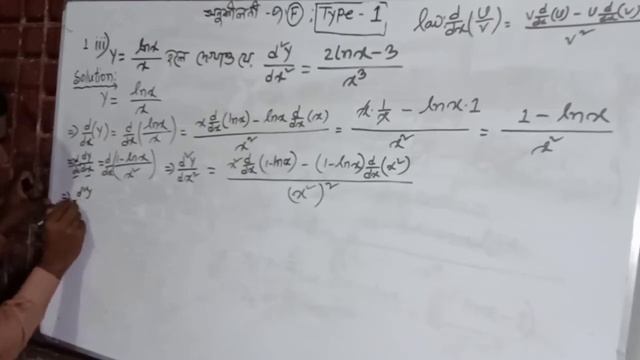 অনুশীলনী - ৯ (F) : Type - 1
law: d/dx (U/V) = (V d/dx (U) - U d/dx (V)) / V²
1 iii) y = lnx/x হলে দেখাও যে d²y/dx² = (2lnx - 3)/x³
Solution:
y = lnx/x
⇒ d/dx (y) = d/dx (lnx/x) = (x d/dx (lnx) - lnx d/dx (x))/x² = (x · 1/x - lnx · 1)/x² = (1 - lnx)/x²
⇒ d²y/dx² = (x² d/dx (1-lnx) - (1-lnx) d/dx (x²))/(x²)²
⇒ d²y